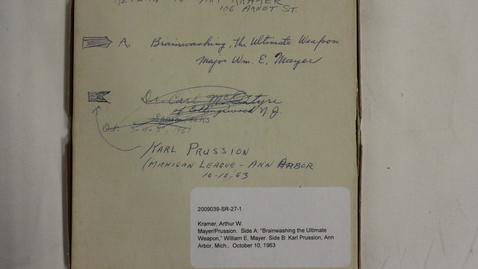 RETURN TO ART KRAMER
106 ARNET ST.
A. Brainwashing, the Ultimate Weapon
Major Wm. E. Mayer
Dr. Carl McIntyre
of Collingswood N.J.
Oct. 1961
KARL PRUSSION
MANIGAN LEAGUE - ANN ARBOR
10-10-63
2009039-SR-27-1
Kramer, Arthur W.
Mayer/Prussion. Side A: "Brainwashing the Ultimate
Weapon," William E. Mayer. Side B: Karl Prussion, Ann
Arbor, Mich., October 10, 1963